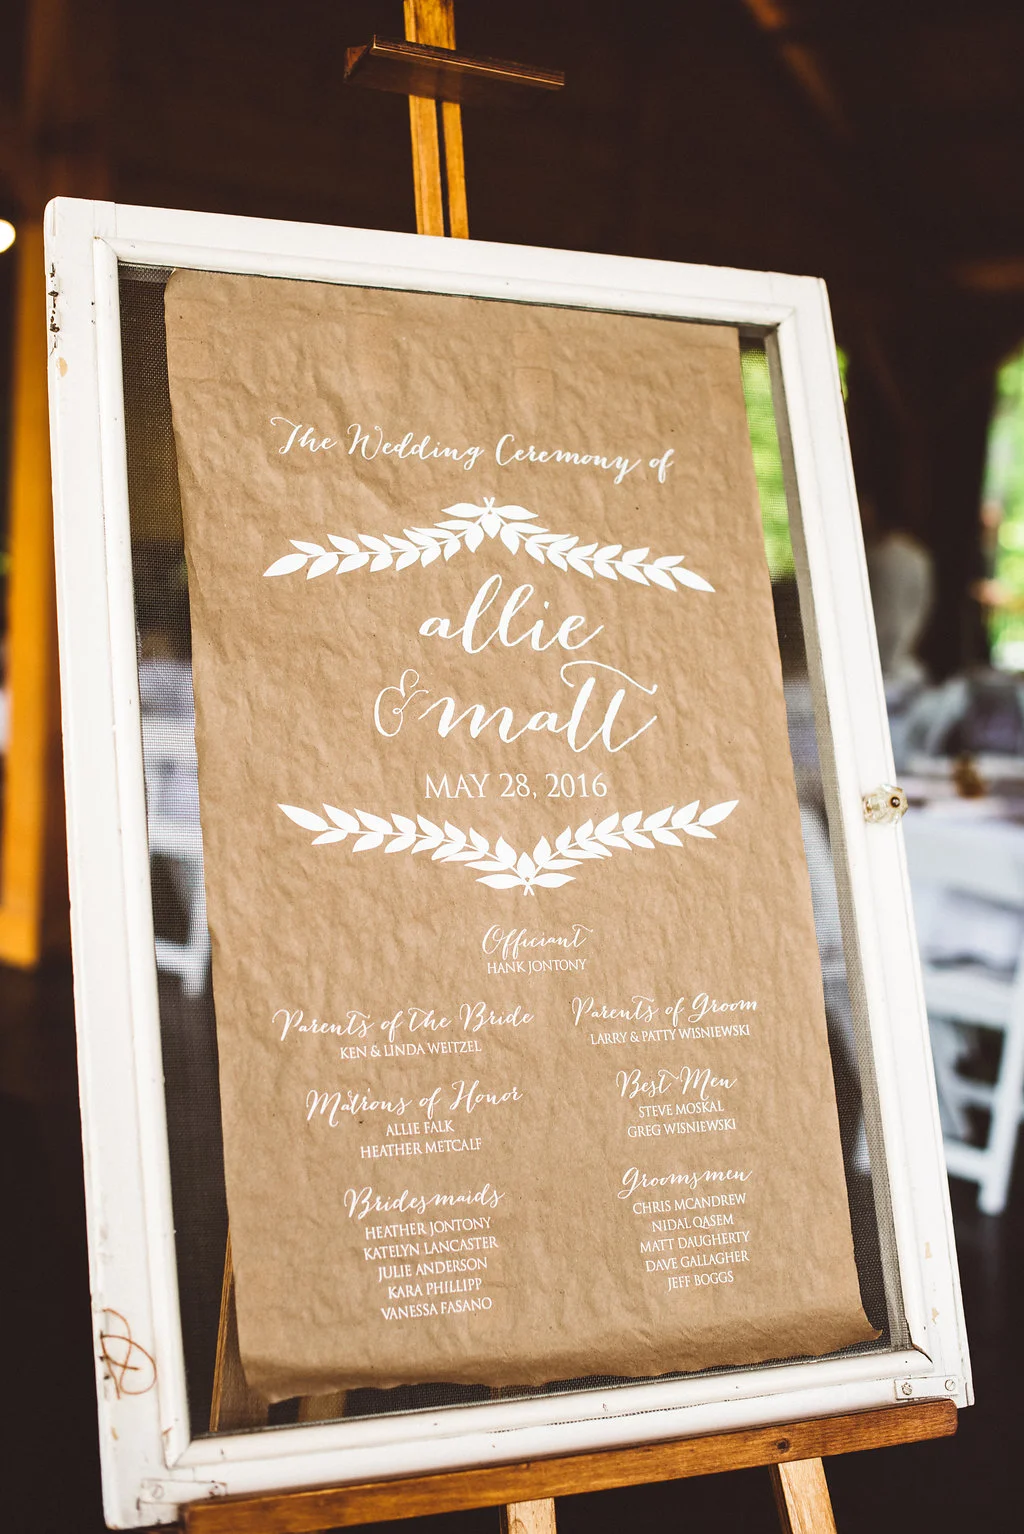 The Wedding Ceremony of
allie
& matt
MAY 28, 2016
Officiant
HANK JONTONY
Parents of the Bride
KEN & LINDA WEITZEL
Parents of Groom
LARRY & PATTY WISNIEWSKI
Matrons of Honor
ALLIE FALK
HEATHER METCALF
Best Men
STEVE MOSKAL
GREG WISNIEWSKI
Bridesmaids
HEATHER JONTONY
KATELYN LANCASTER
JULIE ANDERSON
KARA PHILLIPP
VANESSA FASANO
Groomsmen
CHRIS MCANDREW
NIDAL QASEM
MATT DAUGHERTY
DAVE GALLAGHER
JEFF BOGGS